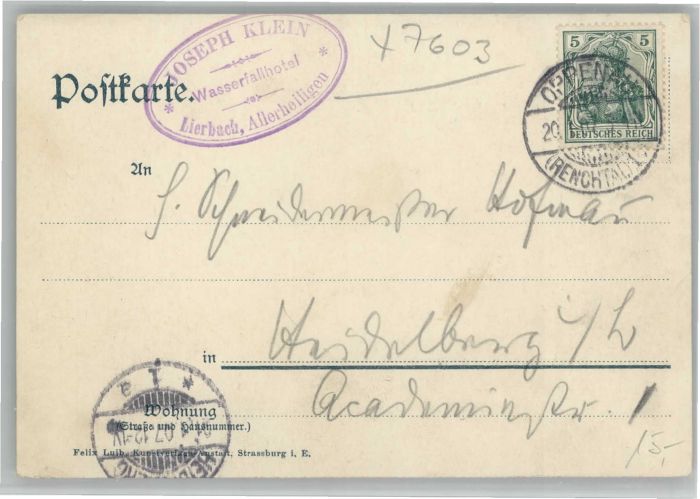 JOSEPH KLEIN
Wasserfallhotel
Lierbach, Allerheiligen
x7603
5 5
DEUTSCHES REICH
OPPENAU
20.
(RENCHTAL)
Postkarte.
An
H. Schneidermeister Hofmau
in Heidelberg i/L
Wohnung
(Straße und Hausnummer.)
Academiestr. 1
15,-
Felix Luib, Kunstverlags-Anstalt, Strassburg i. E.